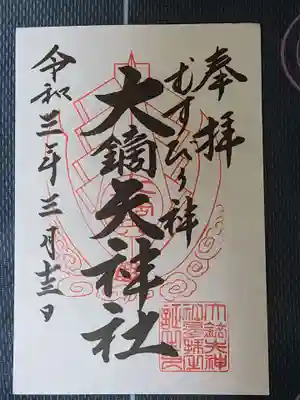 奉拝
むすびの神
大鏑矢神社
令和三年三月十三日